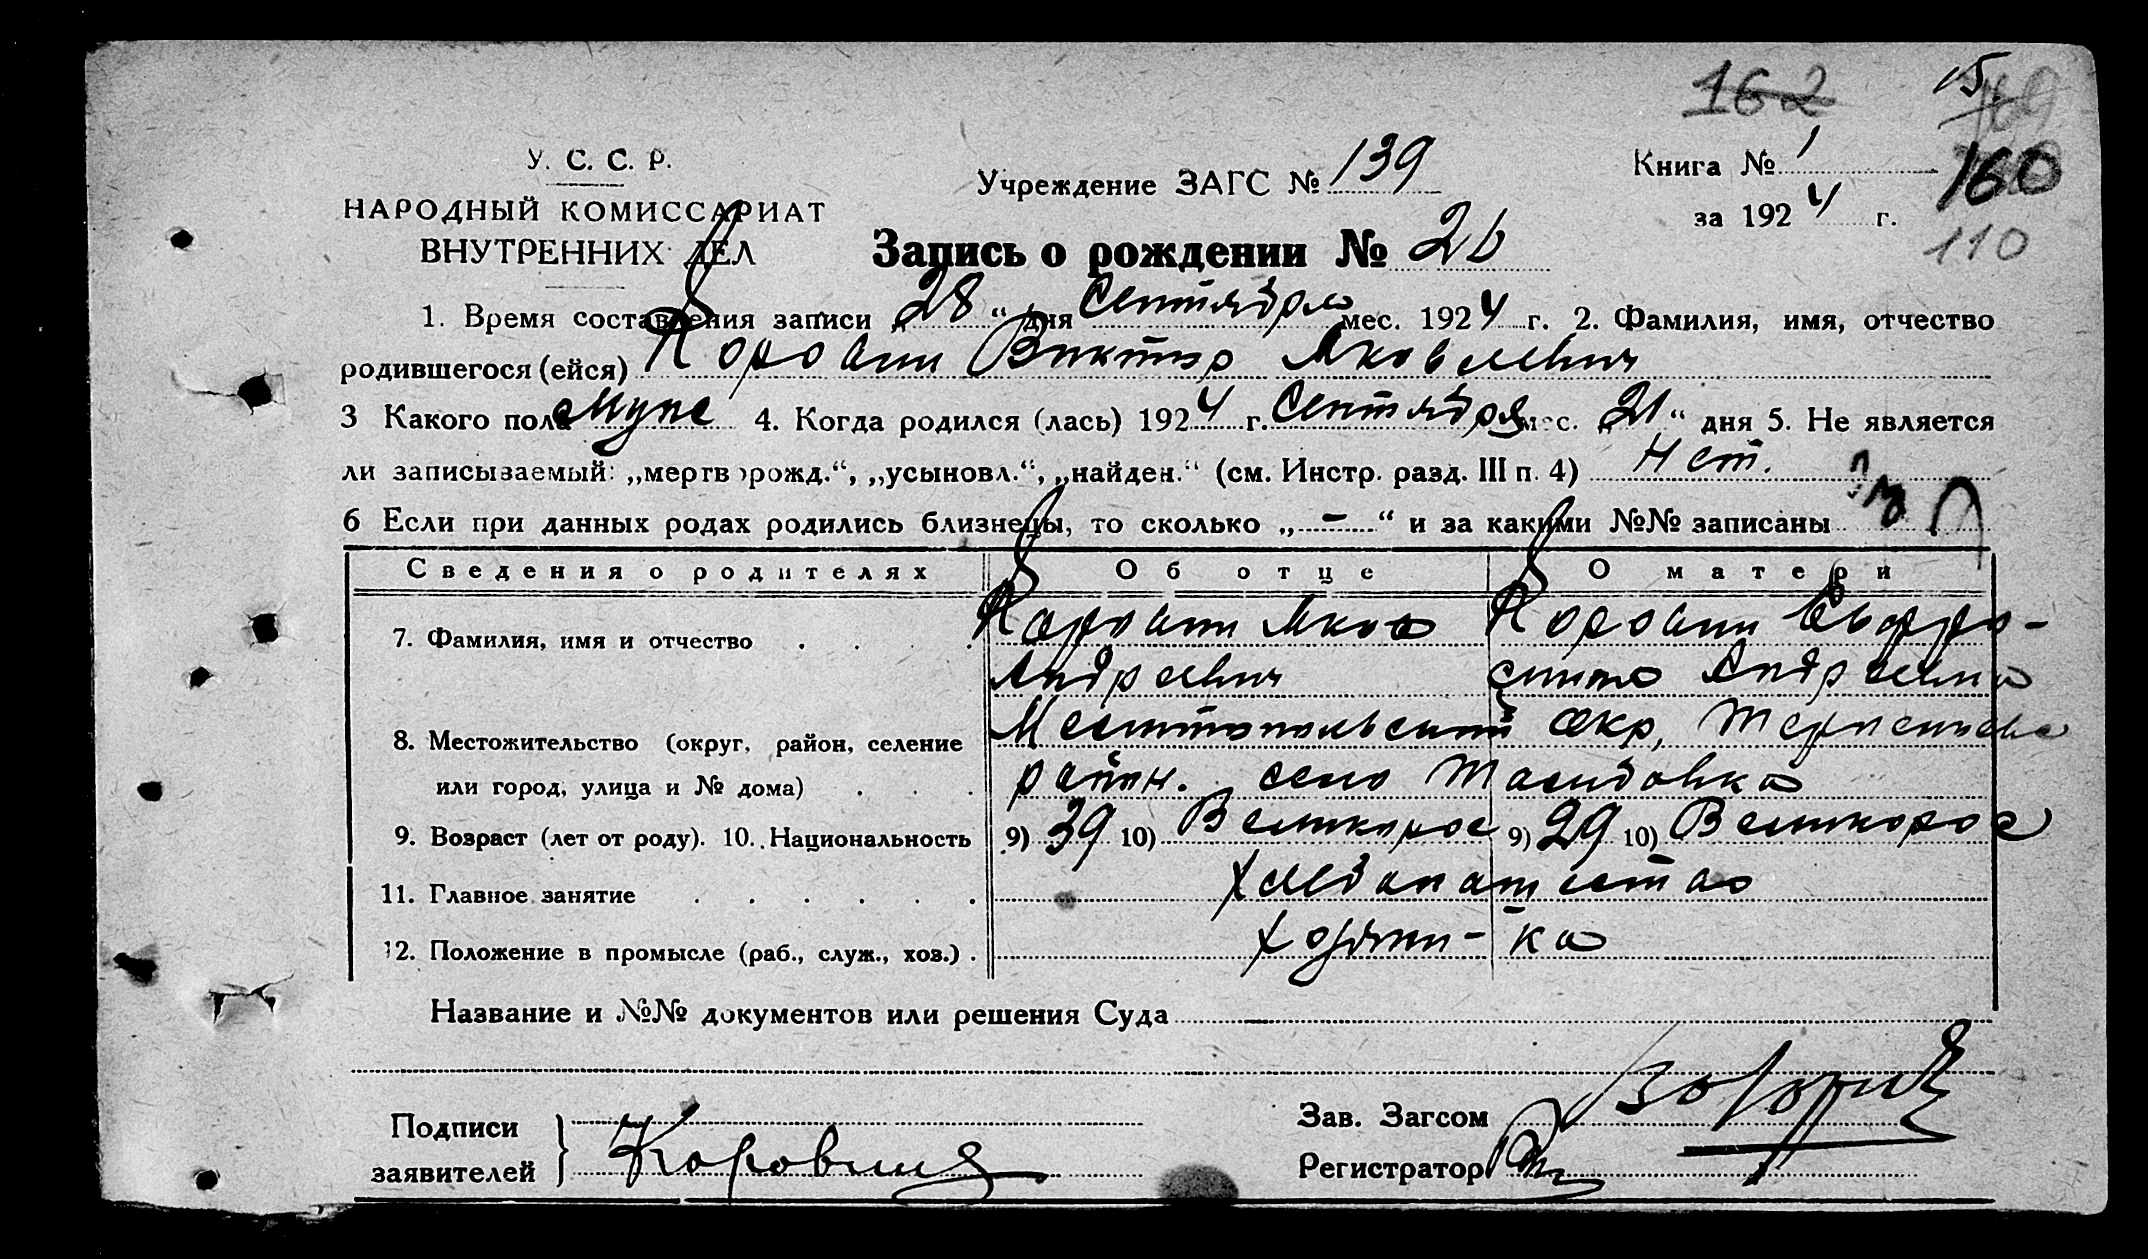 162
15.
169
У. С. С. Р.
Учреждение ЗАГС № 139
Книга № 1
160
НАРОДНЫЙ КОМИССАРИАТ
за 1924 г.
ВНУТРЕННИХ ДЕЛ
Запись о рождении № 26
110
1. Время составления записи „28“ дня Сентября мес. 1924 г. 2. Фамилия, имя, отчество
родившегося (ейся) Коровин Виктор Яковлевич
3 Какого пола Муже 4. Когда родился (лась) 1924 г. Сентября мес. „21“ дня 5. Не является
ли записываемый: „мертворожд.“, „усыновл.“, „найден.“ (см. Инстр. разд. III п. 4) Нет.
6 Если при данных родах родились близнецы, то сколько „-“ и за какими №№ записаны
Сведения о родителях Об отце О матери
7. Фамилия, имя и отчество Коровин Яков Коровин Евфро-
Андреевич синия Андреевна
8. Местожительство (округ, район, селение Мелитопольский Окр, Терпеньев
или город, улица и № дома) район. село
9. Возраст (лет от роду). 10. Национальность 9) 39 10) Великорос 9) 29 10) Великорос
11. Главное занятие Хлебопашество
12. Положение в промысле (раб., служ., хоз.) Хозяин-ка
Название и №№ документов или решения Суда —
Подписи
заявителей
Коровин
Зав. Загсом
Регистратор